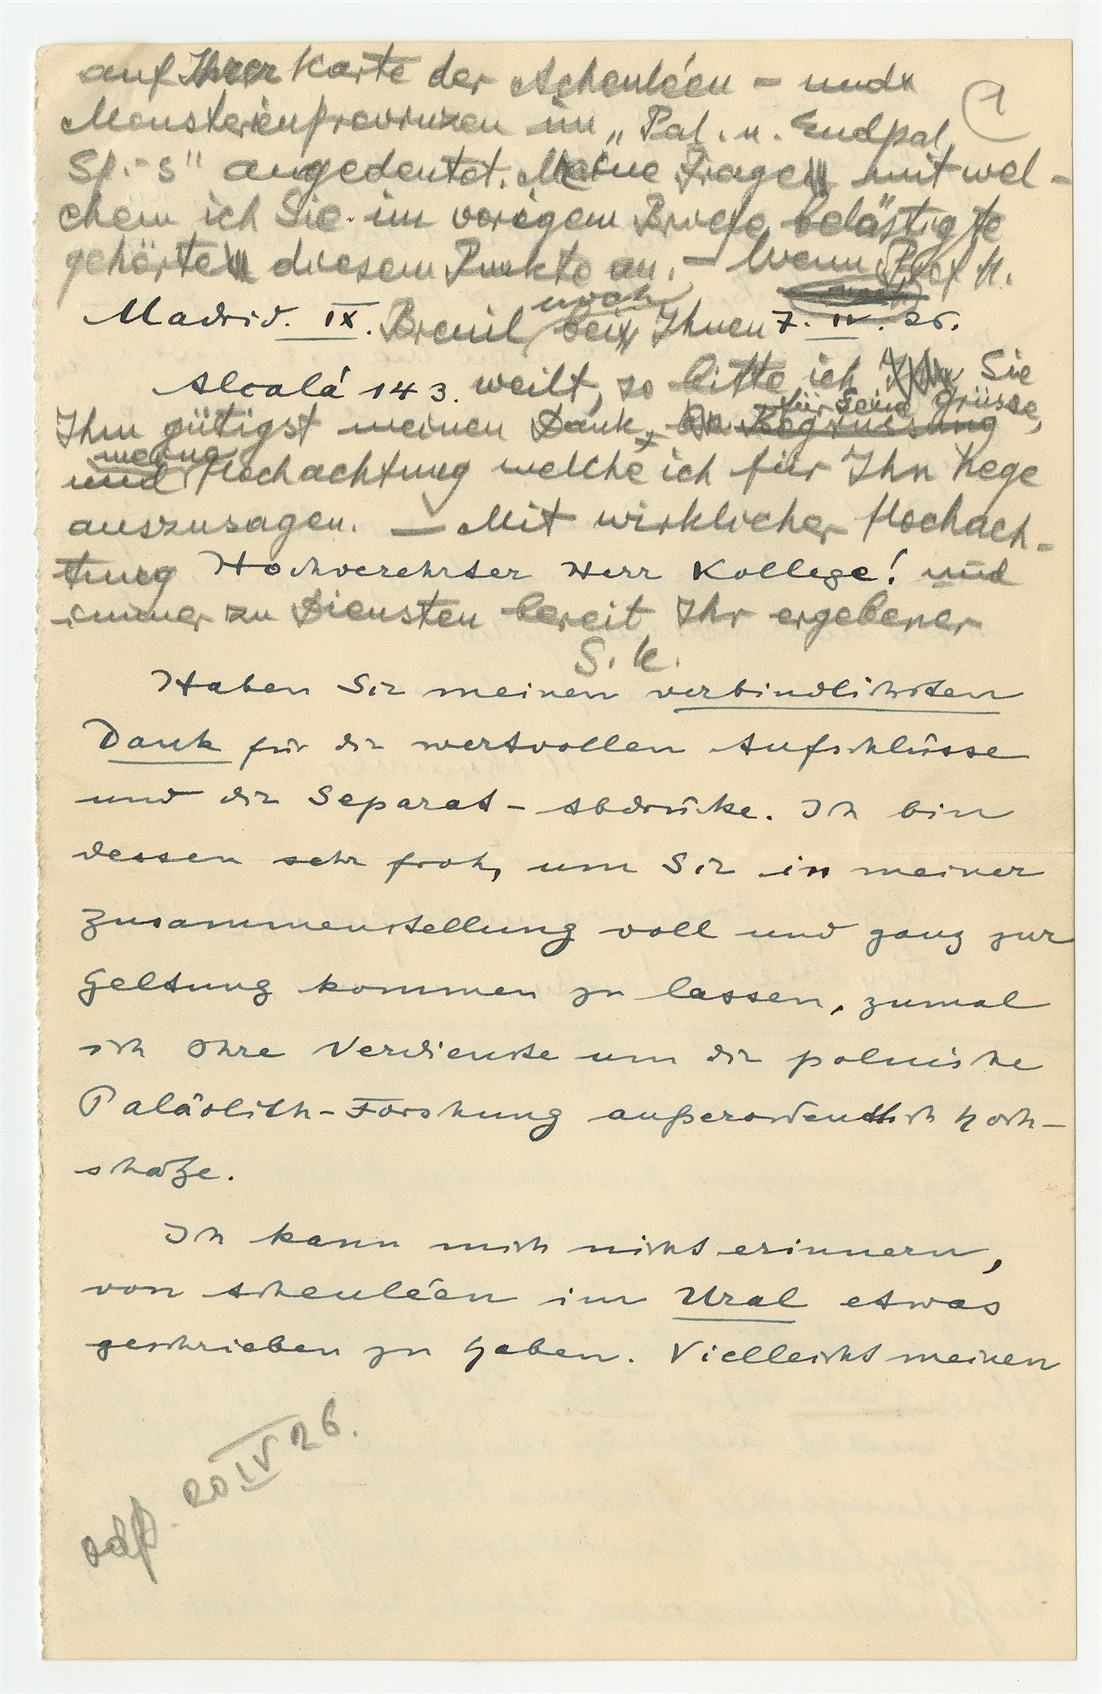 auf Ihrer Karte der Acheuléen - und
Mousterienprovinzen im „Pal. u. Endpal.
Sp.-s" angedeutet. Meine Frage mit wel-
chem ich Sie im vorigem Briefe belästigte
gehörte diesem Punkte an. - Wenn Prof H.
Breuil noch bei Ihnen
Madrid. IX. 7. IV. 26.
Alcalá 143.
weilt, so bitte ich Sie
für seine Grüsse,
Ihm gütigst meinen Dank,
und meine Hochachtung welche ich für Ihn hege
auszusagen. - Mit wirklicher Hochach-
tung und
immer zu Diensten bereit Ihr ergebener
S. K.
Hochverehrter Herr Kollege!
Haben Sie meinen verbindlichsten
Dank für die wertvollen Aufschlüsse
und die Separat-Abdrücke. Ich bin
dessen sehr froh, um Sie in meiner
Zusammenstellung voll und ganz zur
Geltung kommen zu lassen, zumal
ich Ihre Verdienste um die polnische
Paläolith-Forschung außerordentlich hoch-
schätze.
Ich kann mich nicht erinnern,
von Acheuléen im Ural etwas
geschrieben zu haben. Vielleicht meinen
odp. 20 IV 26.
1